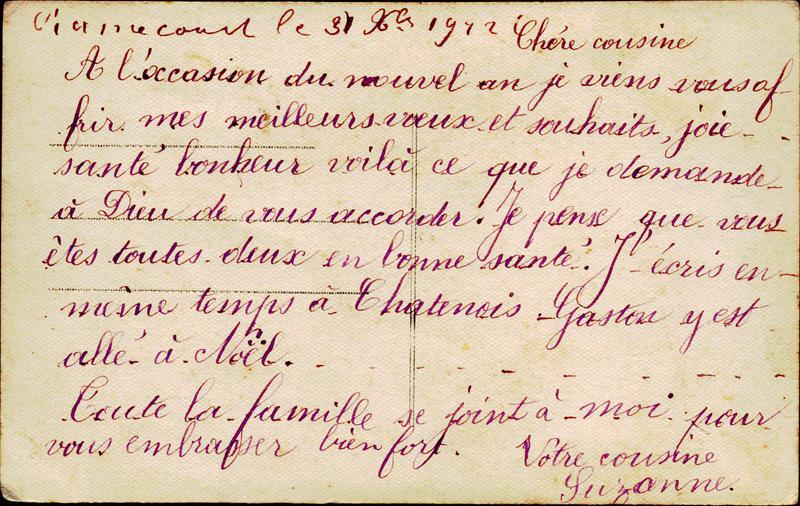 le 31 Xbre 19
Chére cousine
A l'occasion du nouvel an je viens vous of-
frir mes meilleurs vœux et souhaits, joie -
santé bonheur voilà ce que je demande -
à Dieu de vous accorder. Je pense que vous
êtes toutes deux en bonne santé. J'écris en -
même temps à Chatenois - Gaston y est
allé à Noël. - - - - - - - -
Toute la famille se joint à moi pour
vous embrasser bien fort.
Votre cousine
Suzanne.